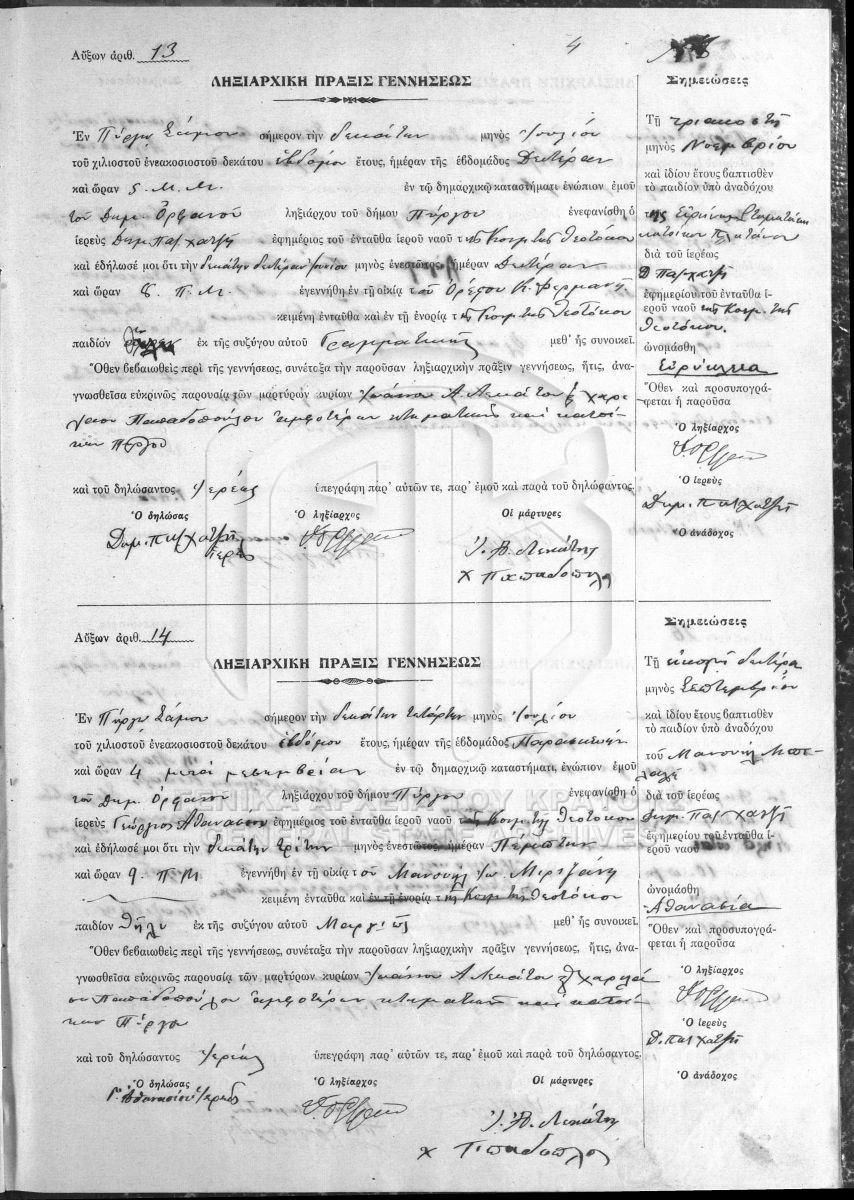 4
Αὔξων ἀριθ. 13
ΛΗΞΙΑΡΧΙΚΗ ΠΡΑΞΙΣ ΓΕΝΝΗΣΕΩΣ
Ἐν Πύργῳ Σάμου σήμερον τὴν δεκάτην μηνὸς Ἰουλίου
τοῦ χιλιοστοῦ ἐνεακοσιοστοῦ δεκάτου ἑβδόμου ἔτους, ἡμέραν τῆς ἑβδομάδος Δευτέραν
καὶ ὥραν 5 Μ. Μ. ἐν τῷ δημαρχικῷ καταστήματι ἐνώπιον ἐμοῦ
τοῦ Δημ. Ὀρφανοῦ ληξιάρχου τοῦ δήμου Πύργου ἐνεφανίσθη ὁ
ἱερεὺς Δημ. Παχατζῆ ἐφημέριος τοῦ ἐνταῦθα ἱεροῦ ναοῦ τῆς Κοιμ. της Θεοτόκου
καὶ ἐδήλωσέ μοι ὅτι τὴν δεκάτην δευτέραν Ἰουνίου μηνὸς ἐνεστῶτος ἡμέραν Δευτέραν
καὶ ὥραν 8 π. Μ. ἐγεννήθη ἐν τῇ οἰκίᾳ τοῦ Ὀρέστου Κ. Φερμανῆ
κειμένῃ ἐνταῦθα καὶ ἐν τῇ ἐνορίᾳ τῆς Κοιμ της Θεοτόκου
παιδίον ἐκ τῆς συζύγου αὐτοῦ Γραμματικῆς μεθ' ἧς συνοικεῖ.
Ὅθεν βεβαιωθεὶς περὶ τῆς γεννήσεως, συνέταξα τὴν παροῦσαν ληξιαρχικὴν πρᾶξιν γεννήσεως, ἥτις, ἀνα-
γνωσθεῖσα εὐκρινῶς παρουσίᾳ τῶν μαρτύρων κυρίων Ἰωάννου Α. Λεκάτου & Χαρι
λάου Παπαδοπούλου ἀμφοτέρων κτηματικῶν καὶ κατοί-
κων Πύργου
καὶ τοῦ δηλώσαντος ἱερέως ὑπεγράφη παρ' αὐτῶν τε, παρ' ἐμοῦ καὶ παρὰ τοῦ δηλώσαντος.
Ὁ δηλώσας Ὁ ληξίαρχος Οἱ μάρτυρες
Δημ. Παχατζῆ
ἱερεὺς
Ἰ. Α. Λεκάτης
Χ Παπαδοπουλο
Σημειώσεις
Τῇ τριακοστῇ
μηνὸς Νοεμβρίου
καὶ ἰδίου ἔτους βαπτισθὲν
τὸ παιδίον ὑπὸ ἀναδόχου
τῆς Εὐρύκλης Σταματίου
κατοίκου Πλατάνου
διὰ τοῦ ἱερέως
Δ Παχατζῆ
ἐφημερίου τοῦ ἐνταῦθα ἱ-
εροῦ ναοῦ τῆς Κοιμ. της
Θεοτόκου.
ὠνομάσθη
Εὐρύκλεια
Ὅθεν καὶ προσυπογρά-
φεται ἡ παροῦσα
Ὁ ληξίαρχος
Ὁ ἱερεὺς
Δημ. Παχατζῆ
Ὁ ἀνάδοχος
Αὔξων ἀριθ. 14
ΛΗΞΙΑΡΧΙΚΗ ΠΡΑΞΙΣ ΓΕΝΝΗΣΕΩΣ
Ἐν Πύργῳ Σάμου σήμερον τὴν δεκάτην τετάρτην μηνὸς Ἰουλίου
τοῦ χιλιοστοῦ ἐνεακοσιοστοῦ δεκάτου ἑβδόμου ἔτους, ἡμέραν τῆς ἑβδομάδος Παρασκευήν
καὶ ὥραν 4 μετὰ μεσημβρίαν ἐν τῷ δημαρχικῷ καταστήματι, ἐνώπιον ἐμοῦ
τοῦ Δημ. Ὀρφανοῦ ληξιάρχου τοῦ δήμου Πύργου ἐνεφανίσθη ὁ
ἱερεὺς Γεώργιος Ἀθανασίου ἐφημέριος τοῦ ἐνταῦθα ἱεροῦ ναοῦ τῆς Κοιμ της Θεοτόκου
καὶ ἐδήλωσέ μοι ὅτι τὴν δεκάτην τρίτην μηνὸς ἐνεστῶτος, ἡμέραν Πέμπτην
καὶ ὥραν 9. π. Μ. ἐγεννήθη ἐν τῇ οἰκίᾳ τοῦ Μανουὴλ Ἰω
κειμένῃ ἐνταῦθα καὶ ἐν τῇ ἐνορίᾳ τῆς Κοιμ της Θεοτόκου
παιδίον θῆλυ ἐκ τῆς συζύγου αὐτοῦ μεθ' ἧς συνοικεῖ.
Ὅθεν βεβαιωθεὶς περὶ τῆς γεννήσεως, συνέταξα τὴν παροῦσαν ληξιαρχικὴν πρᾶξιν γεννήσεως, ἥτις, ἀνα-
γνωσθεῖσα εὐκρινῶς παρουσίᾳ τῶν μαρτύρων κυρίων Ἰωάννου Α Λεκάτου & Χαριλά
ου Παπαδοπούλου ἀμφοτέρων κτηματικῶν καὶ κατοί-
κων Πύργου
καὶ τοῦ δηλώσαντος ἱερέως ὑπεγράφη παρ' αὐτῶν τε, παρ' ἐμοῦ καὶ παρὰ τοῦ δηλώσαντος.
Ὁ δηλώσας Ὁ ληξίαρχος Οἱ μάρτυρες
Γ. Ἀθανασίου Ἱερεὺς
Ἰ. Α. Λεκάτης
Χ Παπαδοπουλο
Σημειώσεις
Τῇ εἰκοστῇ δευτέρᾳ
μηνὸς Σεπτεμβρίου
καὶ ἰδίου ἔτους βαπτισθὲν
τὸ παιδίον ὑπὸ ἀναδόχου
τοῦ Μανουὴλ
διὰ τοῦ ἱερέως
Δημ. Παχατζῆ
ἐφημερίου τοῦ ἐνταῦθα ἱ-
εροῦ ναοῦ
ὠνομάσθη
Ἀθανασία
Ὅθεν καὶ προσυπογρά-
φεται ἡ παροῦσα
Ὁ ληξίαρχος
Ὁ ἱερεὺς
Δ. Παχατζῆ
Ὁ ἀνάδοχος
ΓΕΝΙΚΑ ΑΡΧΕΙΑ ΤΟΥ ΚΡΑΤΟΥΣ
GENERAL STATE ARCHIVES